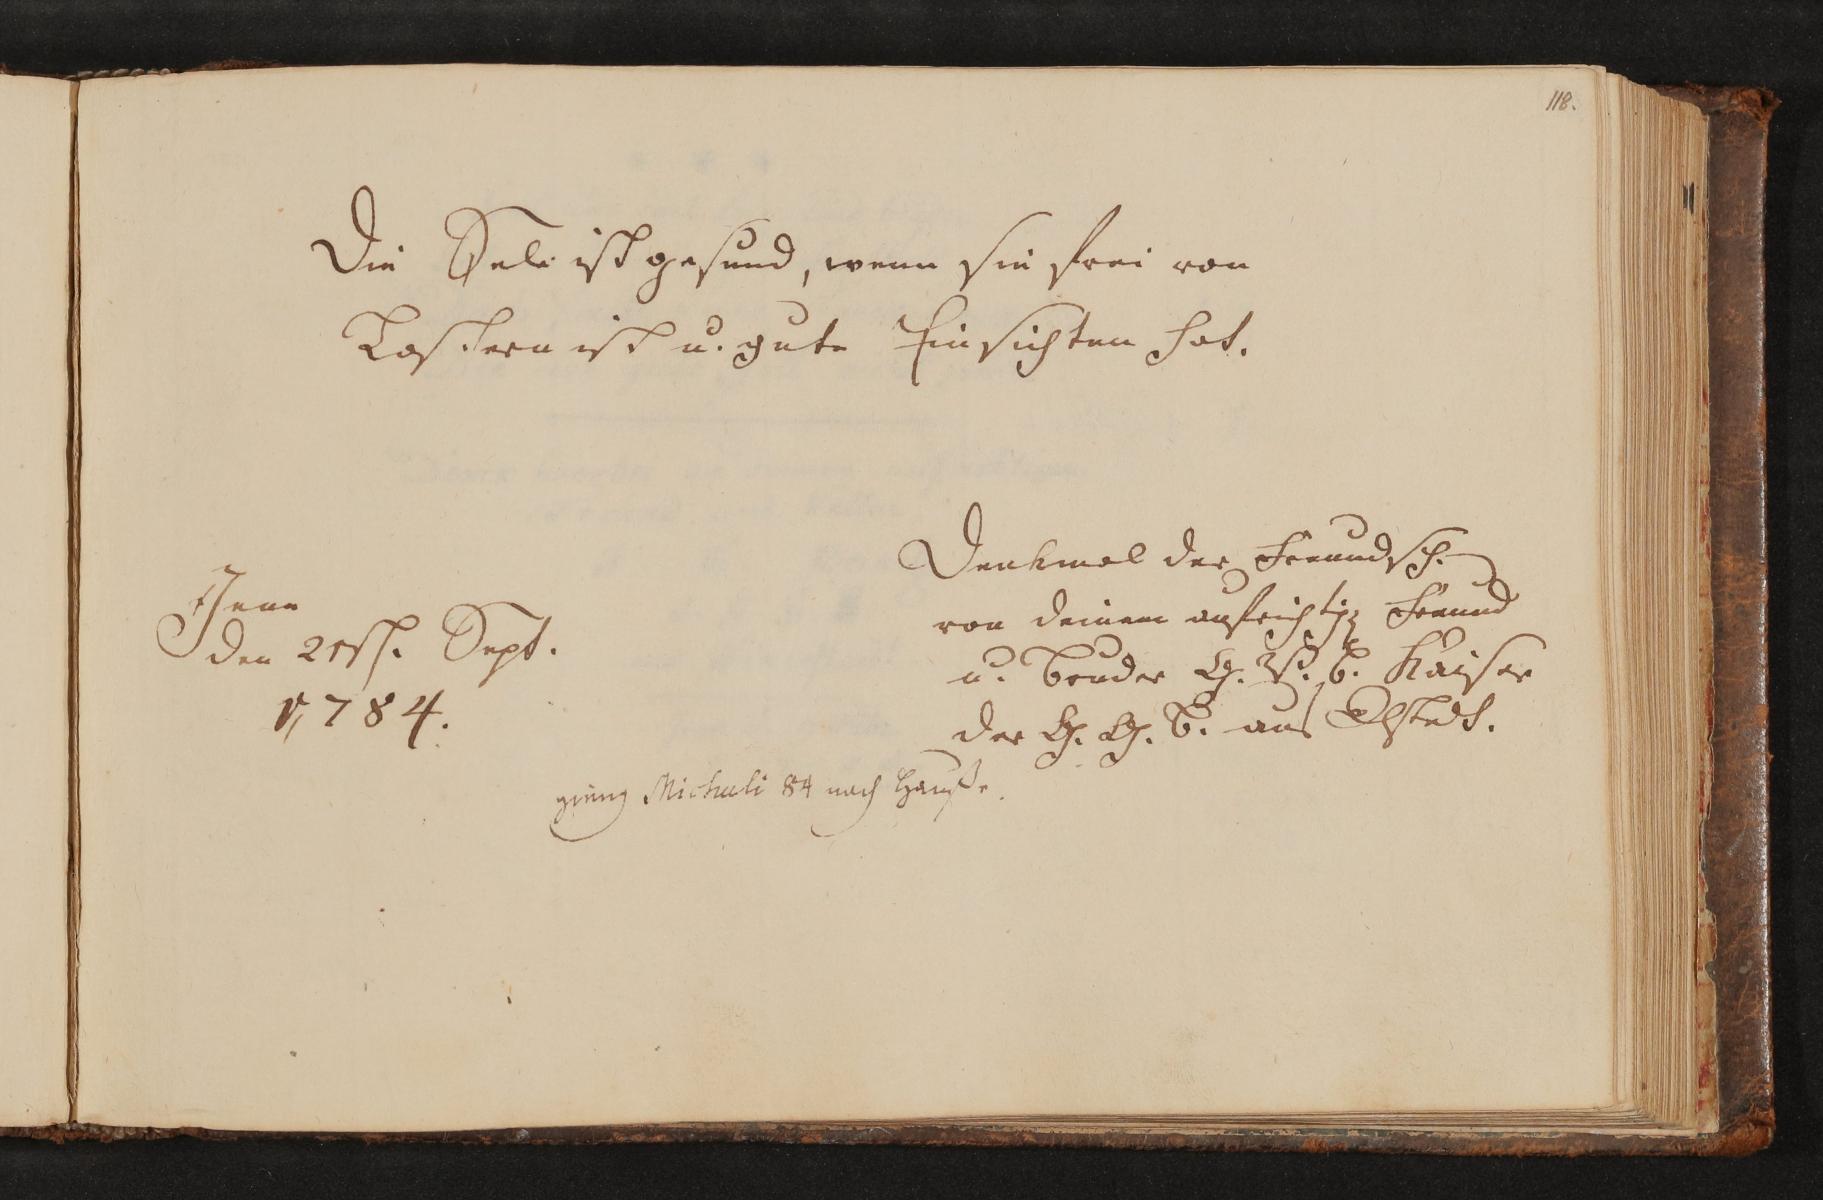 118.
Die Sele ist gesund, wenn sie frei von
Lastern ist u. gute Einsichten hat.
Denkmal der Freundsch.
von deinem aufrichtig Freund
u. Bruder Kaiser
der aus Olstedt.
Jena
den 21st. Sept.
1784.
gieng Michaeli 84 nach Hauße.